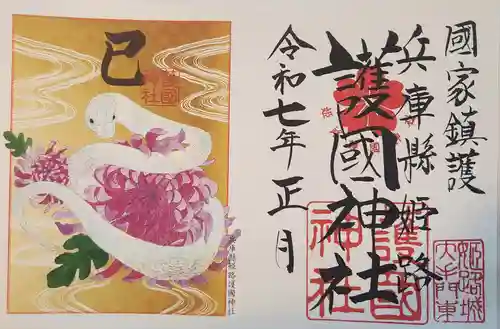 國家鎮護
兵庫縣姫路
護國神社
令和七年正月
護國神社
姫路城
大手門東
巳
兵庫縣姫路護國神社